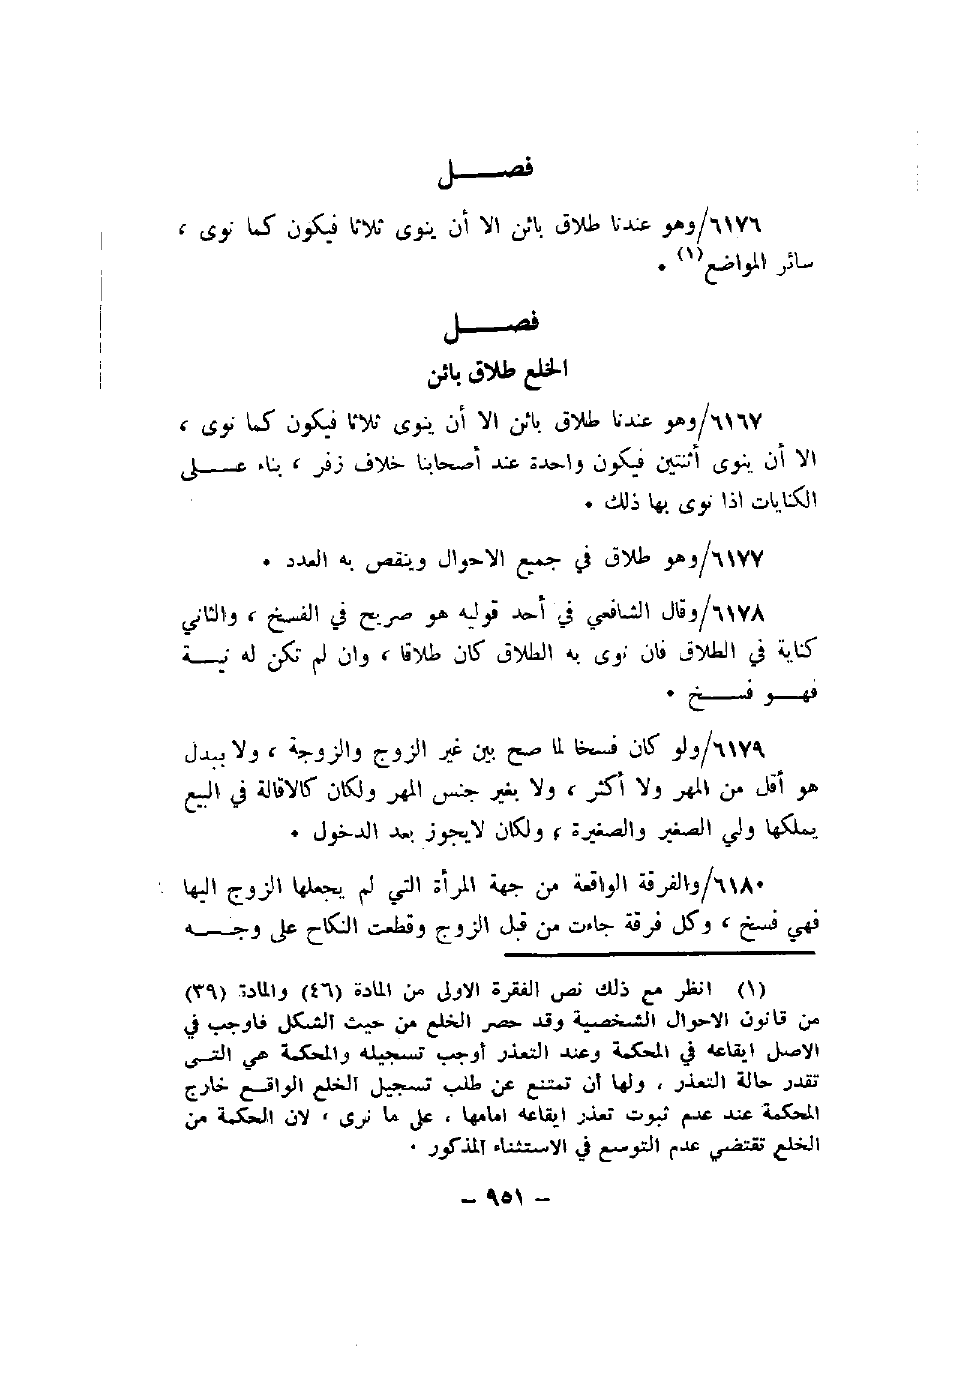 فصـــــل
٦١٧٦/وهو عندنا طلاق بائن الا أن ينوى ثلاثا فيكون كما نوى ،
سائر المواضع(١) ٠
فصـــــل
الخلع طلاق بائن
٦١٦٧/وهو عندنا طلاق بائن الا أن ينوى ثلاثا فيكون كما نوى ،
الا أن ينوى أثنتين فيكون واحدة عند أصحابنا خلاف زفر ، بناء عـــلى
الكنايات اذا نوى بها ذلك ٠
٦١٧٧/وهو طلاق في جميع الاحوال وينقص به العدد ٠
٦١٧٨/وقال الشافعي في أحد قوليه هو صريح في الفسخ ، والثاني
كناية في الطلاق فان نوى به الطلاق كان طلاقا ، وان لم تكن له نيـــة
فهـــو فســـخ ٠
٦١٧٩/ولو كان فسخا لما صح بين غير الزوج والزوجة ، ولا ببدل
هو أقل من المهر ولا أكثر ، ولا بغير جنس المهر ولكان كالاقالة في البيع
يملكها ولي الصغير والصغيرة ، ولكان لايجوز بعد الدخول ٠
٦١٨٠/والفرقة الواقعة من جهة المرأة التي لم يجعلها الزوج اليها
فهي فسخ ، وكل فرقة جاءت من قبل الزوج وقطعت النكاح على وجـــه
(١) انظر مع ذلك نص الفقرة الاولى من المادة (٤٦) والمادة (٣٩)
من قانون الاحوال الشخصية وقد حصر الخلع من حيث الشكل فاوجب في
الاصل ايقاعه في المحكمة وعند التعذر أوجب تسجيله والمحكمة هي التـى
تقدر حالة التعذر ، ولها أن تمتنع عن طلب تسجيل الخلع الواقـع خارج
المحكمة عند عدم ثبوت تعذر ايقاعه امامها ، على ما نرى ، لان الحكمة من
الخلع تقتضي عدم التوسع في الاستثناء المذكور ٠
– ٩٥١ –